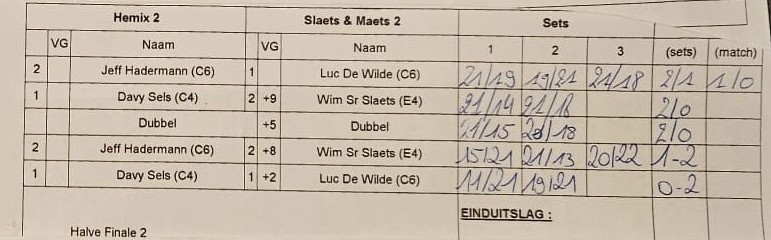 Hemix 2 Slaets & Maets 2 Sets
VG Naam VG Naam 1 2 3 (sets) (match)
2 Jeff Hadermann (C6) 1 Luc De Wilde (C6) 21/19 19/21 21/18 2/1 1/0
1 Davy Sels (C4) 2 +9 Wim Sr Slaets (E4) 21/14 21/18 2/0
Dubbel +5 Dubbel 21/15 18 2/0
2 Jeff Hadermann (C6) 2 +8 Wim Sr Slaets (E4) 15/21 21/13 20/22 1-2
1 Davy Sels (C4) 1 +2 Luc De Wilde (C6) 11/21 19/21 0-2
EINDUITSLAG :
Halve Finale 2